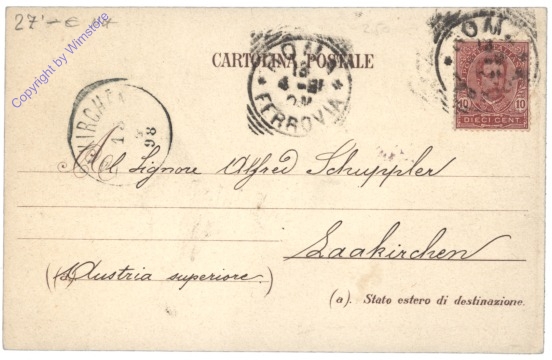 27'- €
Copyright by Wimstore
CARTOLINA POSTALE
ROMA
FERROVIA
ROMA
10 10
DIECI CENT.
98
Al Signore Alfred Schuppler
Laakirchen
(Austria superiore.)
(a). Stato estero di destinazione.